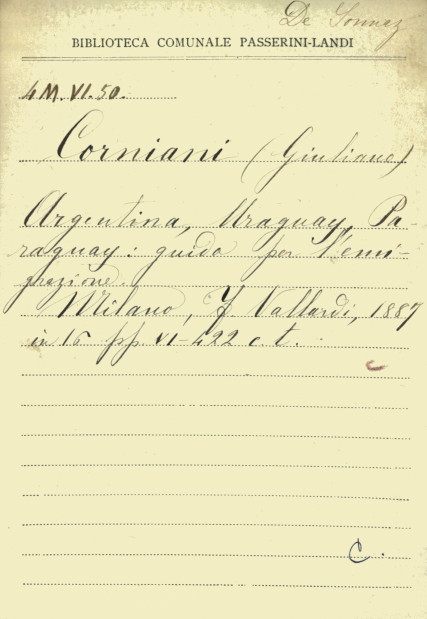 De Sonnaz
BIBLIOTECA COMUNALE PASSERINI-LANDI
4 M. VI. 50.
Corniani (Giuliano)
Argentina, Uraguay, Pa-
raguay: guida per l'emi-
grazione.
Milano, F. Vallardi, 1887
in 16 pp. VI-422 c. t.
C.